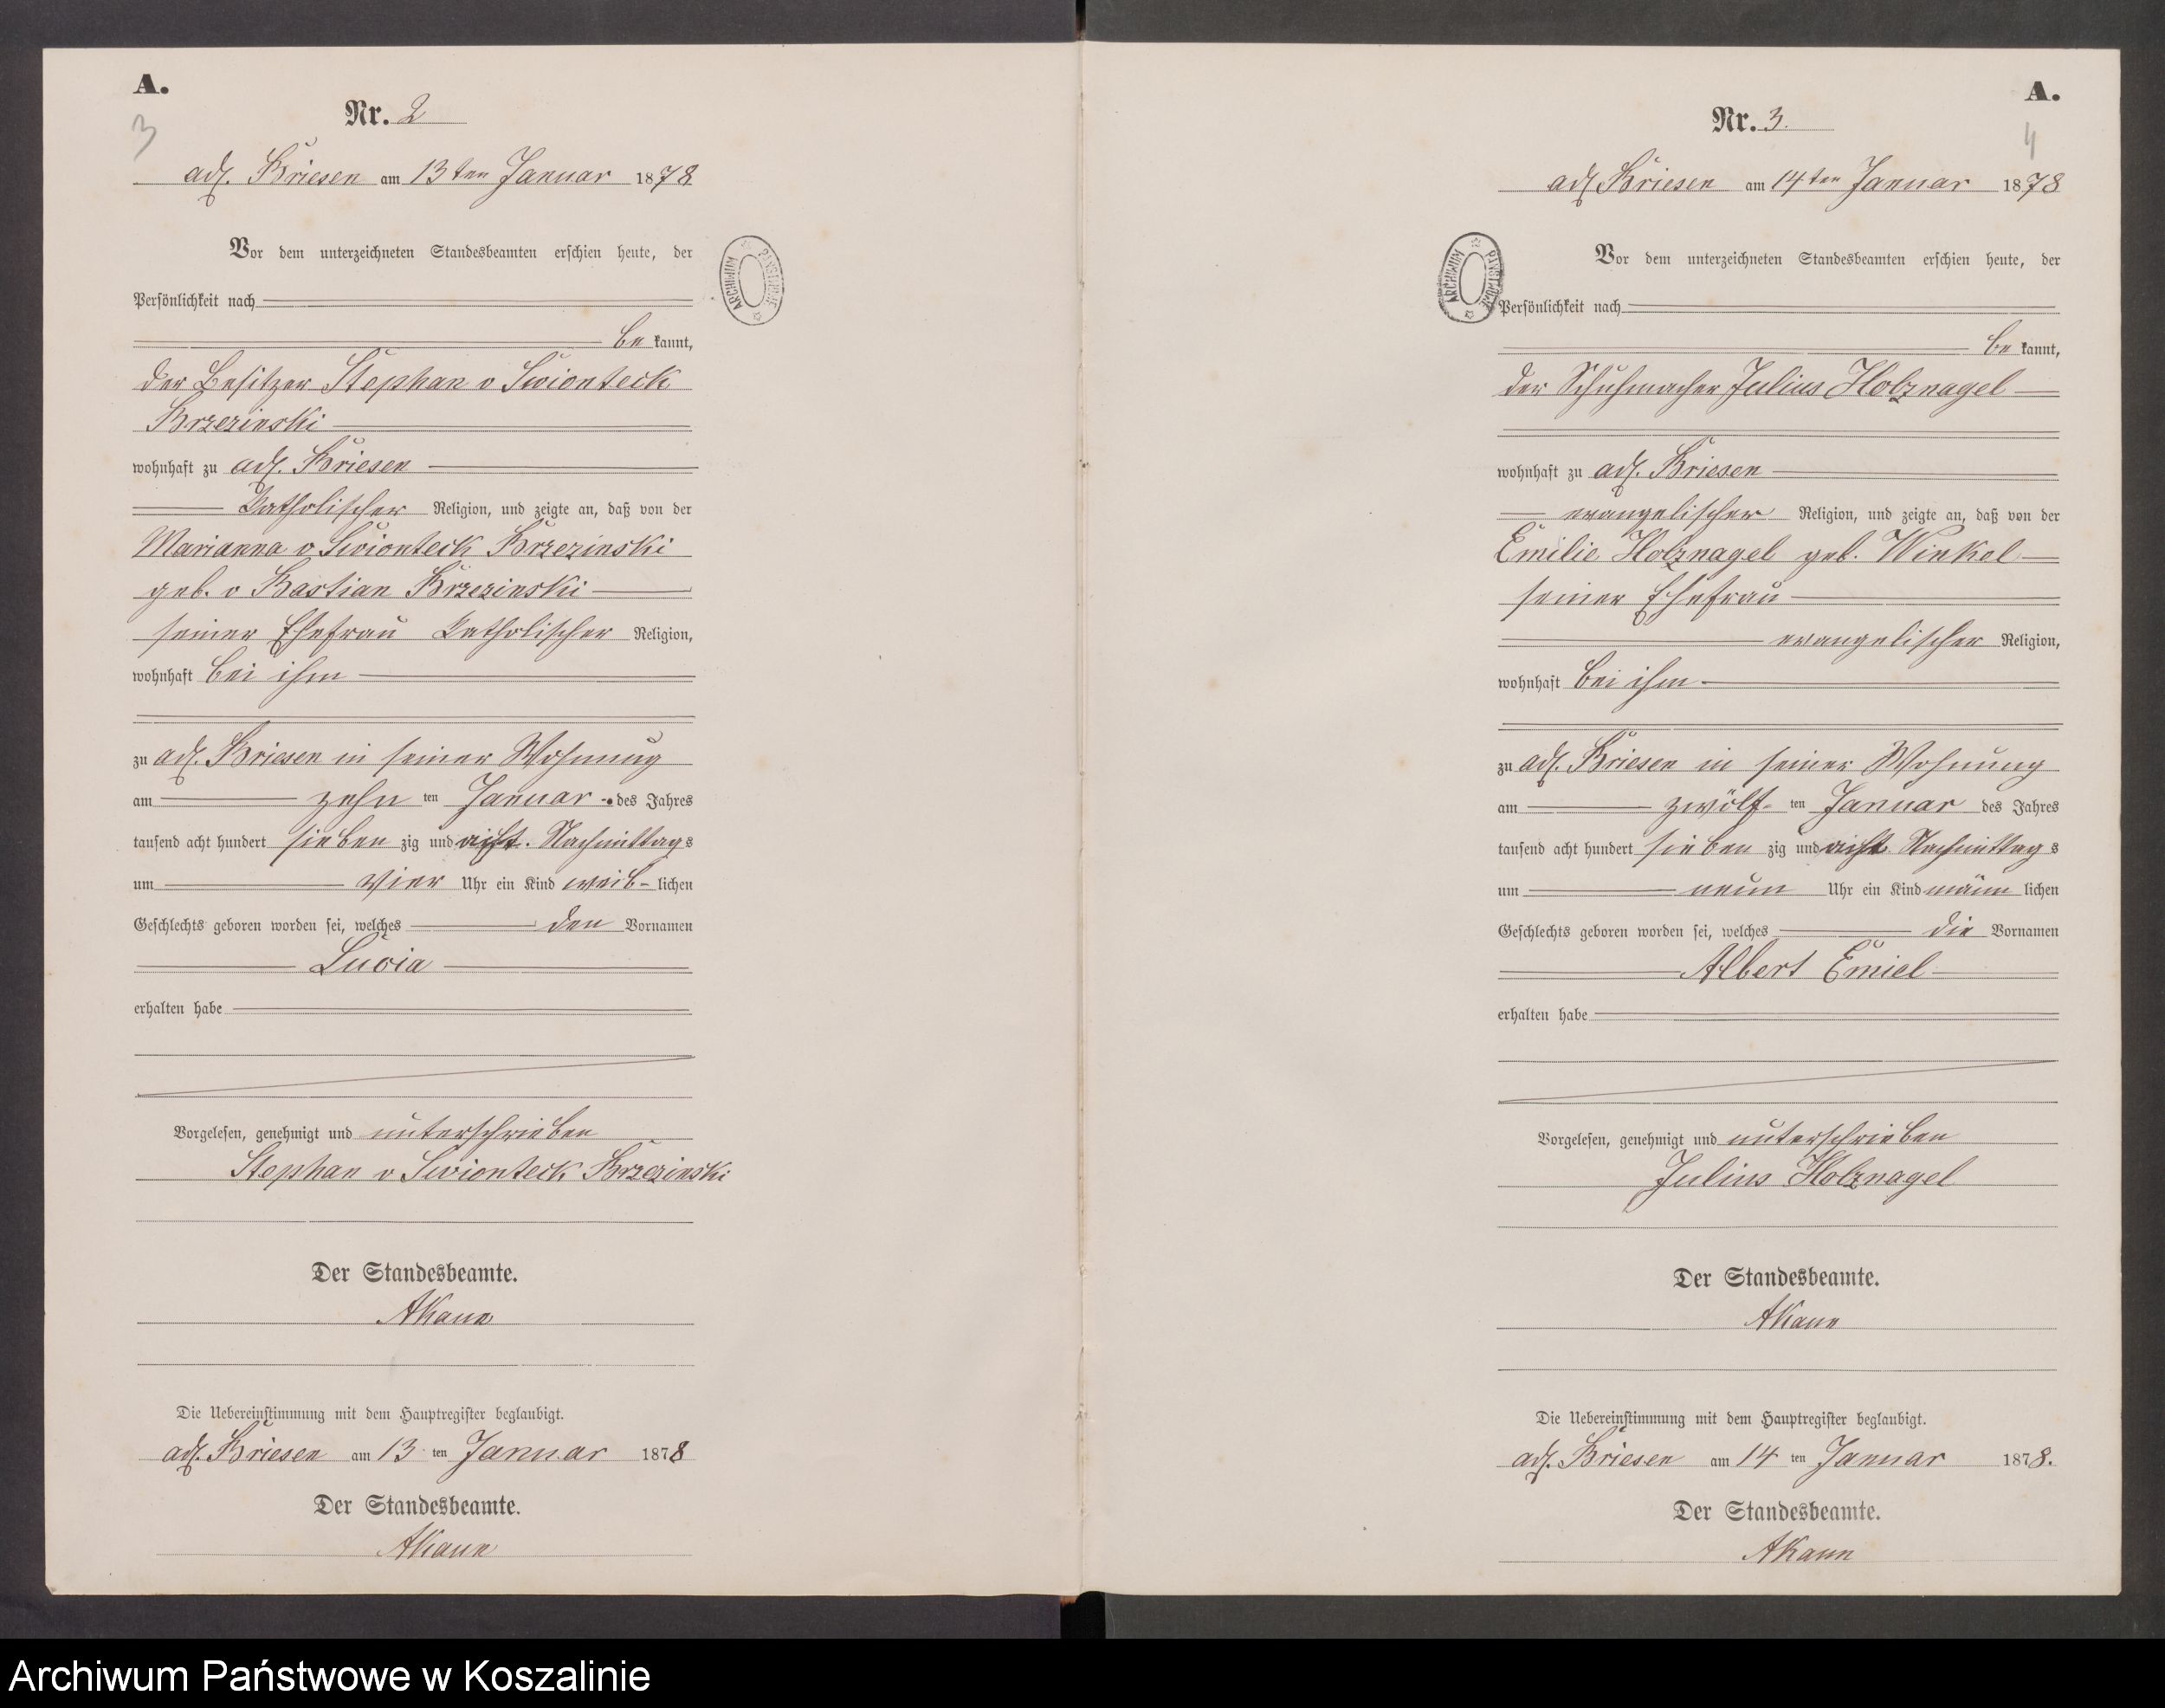 A.
3
Nr. 2
adl. Briesen am 13ten Januar 1878
Vor dem unterzeichneten Standesbeamten erschien heute, der
Persönlichkeit nach
be kannt,
der Besitzer Stephan v Swionteck
Brzezinski
wohnhaft zu adl. Briesen
Katholischer Religion, und zeigte an, daß von der
Marianna v Swionteck Brzezinski
geb. v Bastian Brzezinski
seiner Ehefrau Katholischer Religion,
wohnhaft bei ihm
zu adl. Briesen in seiner Wohnung
am zehn ten Januar des Jahres
tausend acht hundert sieben zig und acht. Nachmittags
um vier Uhr ein Kind weib- lichen
Geschlechts geboren worden sei, welches den Vornamen
Lucia
erhalten habe
Vorgelesen, genehmigt und unterschrieben
Stephan v Swionteck Brzezinski
Der Standesbeamte.
AKann
Die Uebereinstimmung mit dem Hauptregister beglaubigt.
adl. Briesen am 13 ten Januar 1878
Der Standesbeamte.
AKann
ARCHIWUM PAŃSTWOWE
A.
4
Nr. 3.
adl Briesen am 14ten Januar 1878
Vor dem unterzeichneten Standesbeamten erschien heute, der
Persönlichkeit nach
be kannt,
der Schuhmacher Julius Holznagel
wohnhaft zu adl. Briesen
evangelischer Religion, und zeigte an, daß von der
Emilie Holznagel geb. Winkel
seiner Ehefrau
evangelischer Religion,
wohnhaft bei ihm
zu adl. Briesen in seiner Wohnung
am zwölf- ten Januar des Jahres
tausend acht hundert sieben zig und acht Nachmittag s
um neun Uhr ein Kind männ lichen
Geschlechts geboren worden sei, welches die Vornamen
Albert Emiel
erhalten habe
Vorgelesen, genehmigt und unterschrieben
Julius Holznagel
Der Standesbeamte.
AKann
Die Uebereinstimmung mit dem Hauptregister beglaubigt.
adl. Briesen am 14 ten Januar 1878.
Der Standesbeamte.
AKann
ARCHIWUM PAŃSTWOWE
Archiwum Państwowe w Koszalinie